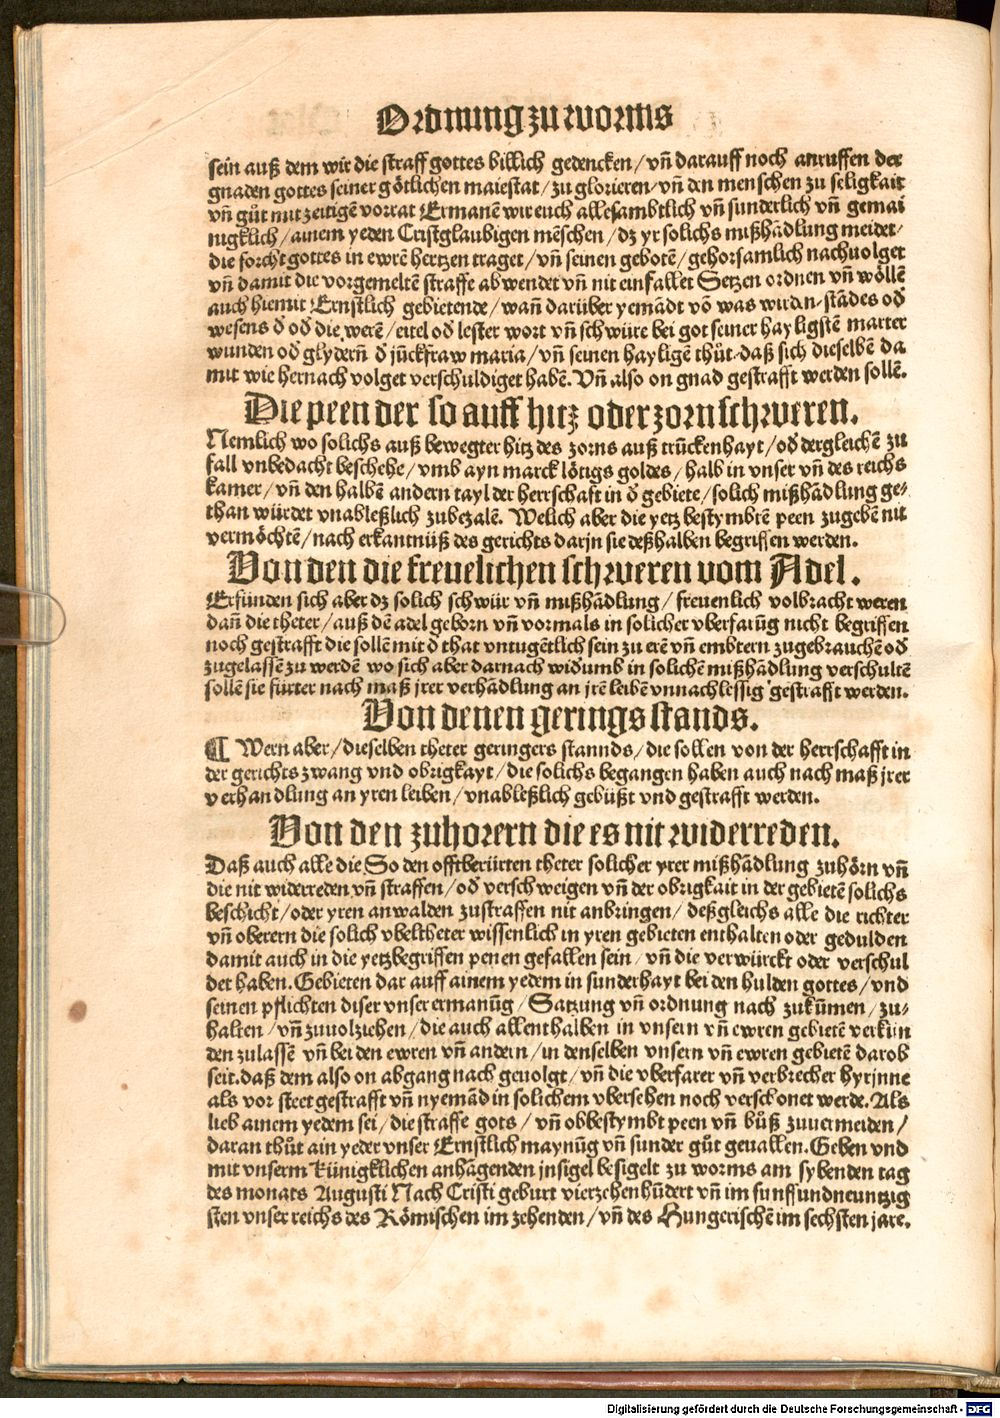 Ordnung zu worms
sein auß dem wir die straff gottes billich gedencken / vñ darauff noch anruffen der
gnaden gottes seiner götlichen maiestat / zu glorieren / vñ den menschen zu seligkait
vñ gůt mit zeitigē vorrat Ermanē wir euch allesambtlich vñ sunderlich vñ gemai
nigklich / ainem yeden Cristglaubigen mēschen / dz yr solichs mißhādlung meidet /
die forcht gottes in ewrē hertzen traget / vñ seinen gebotē / gehorsamlich nachuolget
vñ damit die vorgemeltē straffe abwendet vñ nit einfallet Setzen ordnen vñ wöllē
auch hiemit Ernstlich gebietende / wañ darüber yemādt vō was wirdn / stādes od̄
wesens d̄ od̄ die werē / eitel od̄ lester wort vñ schwüre bei got seiner hayligstē marter
wunden od̄ glydern̄ d̄ jūckfraw maria / vñ seinen hayligē thůt / daß sich dieselbē da
mit wie hernach volget verschuldiget habē. Vñ also on gnad gestrafft werden sollē.
Die peen der so auff hitz oder zorn schweren.
Nemlich wo solichs auß bewegter hitz des zorns auß trūckenhayt / od̄ dergleichē zu
fall vnbedacht beschehe / vmb ayn marck lötigs goldes / halb in vnser vñ des reichs
kamer / vñ den halbē andern tayl der herrschaft in d̄ gebiete / solich mißhādlung ge⸗
than würdet vnableßlich zubezalē. Welich aber die yetz bestymbtē peen zugebē nit
vermöchtē / nach erkantnüß des gerichts darjn sie deßhalben begriffen werden.
Von den die freuelichen schweren vom Adel.
Erfunden sich aber dz solich schwür vñ mißhādlung / freuenlich volbracht weren
dañ die theter / auß dē adel geborn vñ vormals in solicher vberfarūg nicht begriffen
noch gestrafft die sollē mit d̄ that vntugētlich sein zu erē vñ embtern zugebrauchē od̄
zugelassē zu werdē wo sich aber darnach wid̄umb in solichē mißhādlung verschultē
sollē sie fürter nach maß jrer verhādlung an jrē leibē vnnachlessig gestrafft werden.
Von denen gerings stands.
¶ Wern aber / dieselben theter geringers stannds / die sollen von der herrschafft in
der gerichts zwang vnd obrigkayt / die solichs begangen haben auch nach maß jrer
verhandlung an yren leiben / vnableßlich gebüßt vnd gestrafft werden.
Von den zuhorern die es nit widerreden.
Daß auch alle die So den offtberürten theter solicher yrer mißhādlung zuhörn vñ
die nit widerreden vñ straffen / od̄ verschweigen vñ der obrigkait in der gebietē solichs
beschicht / oder yren anwalden zustraffen nit anbringen / deßgleichs alle die richter
vñ oberern die solich vbeltheter wissenlich in yren gebieten enthalten oder gedulden
damit auch in die yetzbegriffen penen gefallen sein / vñ die verwürckt oder verschul
det haben. Gebieten dar auff ainem yedem in sunderhayt bei den hulden gottes / vnd
seinen pflichten diser vnser ermanūg / Satzung vñ ordnung nach zukūmen / zu⸗
halten / vñ zuuolziehen / die auch allenthalben in vnsern vñ ewren gebietē verkün
den zulassē vñ bei den ewren vñ andern / in denselben vnsern vñ ewren gebietē darob
seit. daß dem also on abgang nach geuolgt / vñ die vberfarer vñ verbrecher hyrjnne
als vor steet gestrafft vñ nyemād in solichem vbersehen noch verschonet werde. Als
lieb ainem yedem sei / die straffe gots / vñ obbestymbt peen vñ bůß zuuermeiden /
daran thůt ain yeder vnser Ernstlich maynūg vñ sunder gůt geuallen. Geben vnd
mit vnserm Künigklichen anhāgenden jnsigel besigelt zu worms am sybenden tag
des monats Augusti Nach Cristi geburt vierzehenhūdert vñ im funffundneuntzig
sten vnser reichs des Römischen im zehenden / vñ des Hungerischē im sechsten jare.
Digitalisierung gefördert durch die Deutsche Forschungsgemeinschaft - DFG